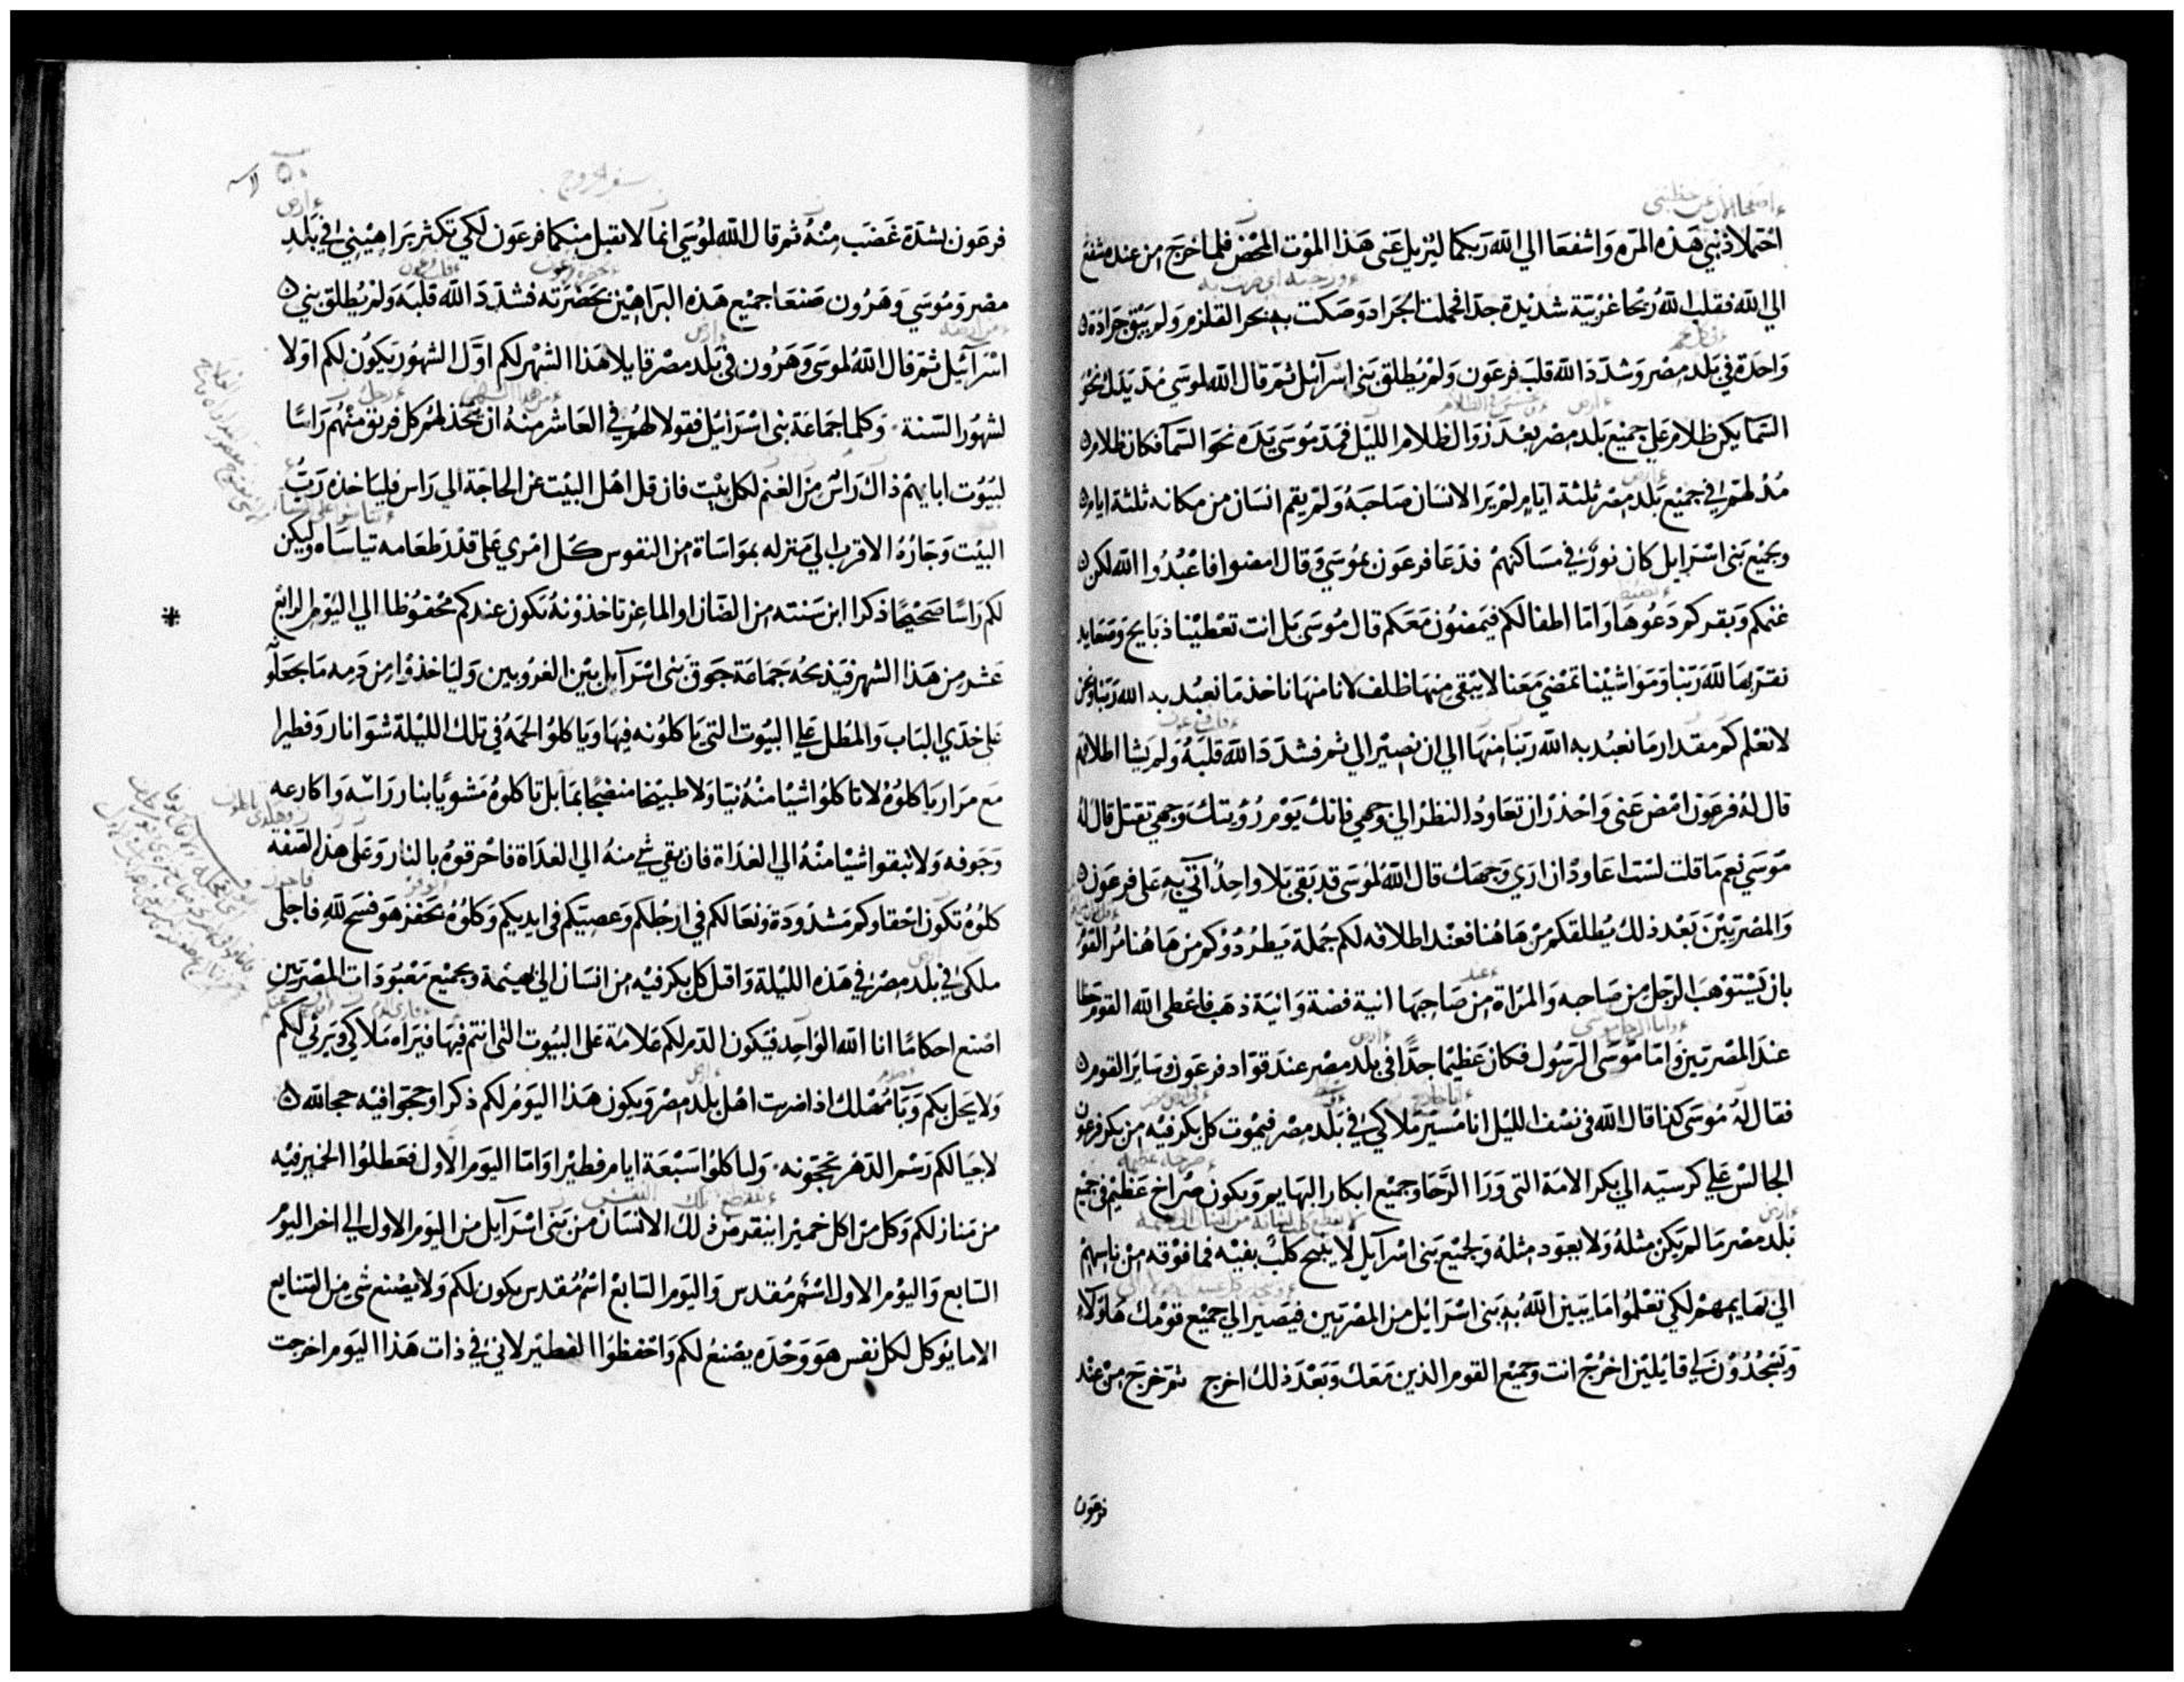 احتملا ذنبي هذه المره واشفعا الي الله ربكما ليزيل عني هذا الموت المحض فلما خرج من عنده شفع
الي الله فقلب الله ريحا غربية شديدة جدا فحملت الجراد وصكت به بحر القلزم ولم يبق جرادة
واحدة في بلد مصر وشدد الله قلب فرعون ولم يطلق بني اسرآئيل ثم قال الله لموسي مد يدك نحو
السما يكن ظلام علي جميع بلد مصر بعد زوال ظلام الليل فمد موسي يده نحو السما فكان ظلام
مدلهم في جميع بلد مصر ثلثة ايام لم ير الانسان صاحبه ولم يقم انسان من مكانه ثلثة ايام
وبجميع بني اسرايل كان نور في مساكنهم فدعا فرعون بموسي وقال امضوا فاعبدوا الله لكن
غنمكم وبقركم دعوها واما اطفالكم فيمضون معكم قال موسي بل انت تعطينا ذبايح وصعايد
نقربها لله ربنا ومواشينا تمضي معنا لا يبقي منها ظلف لانا منها ناخذ ما نعبد به الله ربنا ونحن
لا نعلم كم مقدار ما نعبد به الله ربنا منها الي ان نصير الي ثم فشدد الله قلبه ولم يشا اطلاقهم
قال له فرعون امض عني واحذر ان تعاود النظر الي وجهي فانك يوم رؤيتك وجهي تقتل قال له
موسي نعم ما قلت لست اعاود ان اري وجهك قال الله لموسي قد بقي بلا واحد آتي به علي فرعون
والمصريين بعد ذلك يطلقكم من هاهنا فعند اطلاقه لكم جملة يطردوكم من هاهنا مر القوم
بان يستوهب الرجل من صاحبه والمراة من صاحبها انية فضة وانية ذهب فاعطي الله القوم حظا
عند المصريين واما موسي الرسول فكان عظيما جدا في بلد مصر عند قواد فرعون وساير القوم
فقال له موسي كذا قال الله في نصف الليل انا مسير ملاكي في بلد مصر فيموت كل بكر فيه من بكر فرعون
الجالس علي كرسيه الي بكر الامة التي ورا الرحا وجميع ابكار البهايم ويكون صراخ عظيم في جميع
بلد مصر ما لم يكن مثله ولا يعود مثله ولجميع بني اسرآيل لا ينبح كلب بفيه فما فوقه من ناسهم
الي بهايمهم لكي تعلموا ما يبين الله به بني اسرائيل من المصريين فيصير الي جميع قومك هاولاء
ويسجدون لي قايلين اخرج انت وجميع القوم الذين معك وبعد ذلك اخرج ثم خرج من عند
فرعون
سفر الخروج
فرعون بشدة غضب منه ثم قال الله لموسي انما لا يقبل منكما فرعون لكي تكثر براهيني في بلد
مصر وموسي وهرون صنعا جميع هذه البراهين بحضرته فشدد الله قلبه ولم يطلق بني
اسرآئيل ثم قال الله لموسي وهرون في بلد مصر قايلا هذا الشهر لكم اول الشهور يكون لكم اولا
لشهور السنة وكلما جماعة بني اسرائيل فقولا لهم في العاشر منه ان يتخذ لهم كل فريق منهم راسا
لبيوت ابايهم ذاك راس من الغنم لكل بيت فان قل اهل البيت عن الحاجة الي راس فلياخذه رب
البيت وجاره الاقرب الي منزله بمواساة من النفوس كل امري علي قدر طعامه تياساه وليكن
لكم راسا صحيحا ذكرا ابن سنته من الضان او الماعز تاخذونه تكون عندكم محفوظا الي اليوم الرابع
عشر من هذا الشهر فيذبحه جماعة جوق بني اسرآيل بين الغروبين ولياخذوا من دمه ما يجعلوه
علي خدي الباب والمطل علي البيوت التي ياكلونه فيها وياكلوا لحمه في تلك الليلة شوا نار وفطيرا
مع مرار ياكلوه لا تاكلوا شيا منه نيا ولا طبيخا منضجا بما بل تاكلوه مشويا بنار راسه واكارعه
وجوفه ولا تبقوا شيا منه الي الغداة فان بقي شي منه الي الغداة فاحرقوه بالنار وعلي هذه الصفة
كلوه تكون احقاوكم مشدودة ونعالكم في ارجلكم وعصيكم في ايديكم وكلوه بحفز هو فسح لله فاجلي
ملكي في بلد مصر في هذه الليلة واقتل كل بكر فيه من انسان الي بهيمة وبجميع معبودات المصريين
اصنع احكاما انا الله الواحد فيكون الدم لكم علامة علي البيوت التي انتم فيها فيراه ملاكي ويرثي لكم
ولا يحل بكم وبا مهلك اذا ضربت اهل بلد مصر ويكون هذا اليوم لكم ذكرا وحجوا فيه حجا لله
لاجيالكم رسم الدهر تحجونه ولياكلوا سبعة ايام فطيرا واما اليوم الاول فعطلوا الخمير فيه
من منازلكم وكل من اكل خميرا ينقد من ذلك الانسان من بني اسرآيل من اليوم الاول الي اخر اليوم
السابع واليوم الاول اسم مقدس واليوم السابع اسم مقدس يكون لكم ولا يصنع شي من الصنايع
الا ما يؤكل لكل نفس هو وحده يصنع لكم واحفظوا الفطير لاني في ذات هذا اليوم اخرجت